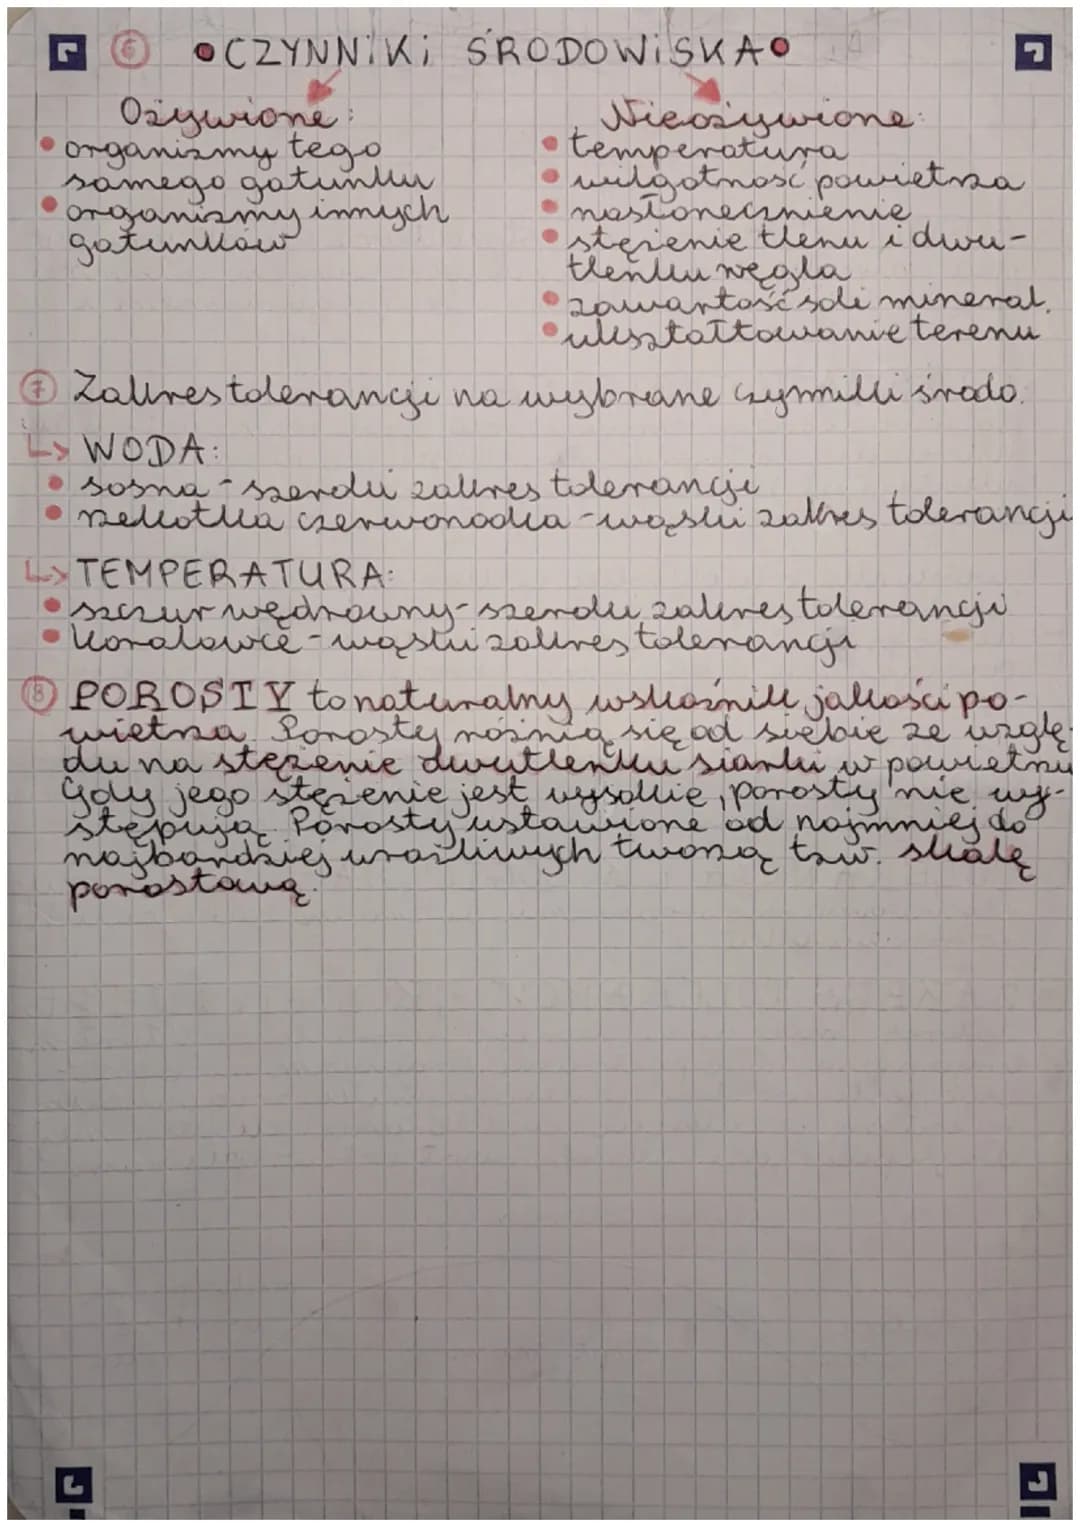 6 •CZYNNiKi ŚRODOWiSKA•
Ożywione:
• organizmy tego
samego gatunku
• organizmy innych
gatunków
Nieożywione:
• temperatura
• wilgotność powietrza
• nasłonecznienie
• stężenie tlenu i dwu-
tlenku węgla
• zawartość soli mineral.
• ukształtowanie terenu
7 Zakres tolerancji na wybrane czynniki środo.
↳ WODA:
• sosna - szeroki zakres tolerancji
• rzekotka czerwonooka - wąski zakres tolerancji
↳ TEMPERATURA:
• szczur wędrowny - szeroki zakres tolerancji
• koralowce - wąski zakres tolerancji
8 POROSTY to naturalny wskaźnik jakości po-
wietrza. Porosty różnią się od siebie ze wzglę-
du na stężenie dwutlenku siarki w powietrzu
Gdy jego stężenie jest wysokie, porosty nie wy-
stępują. Porosty ustawione od najmniej do
najbardziej wrażliwych tworzą tzw. skalę
porostową.